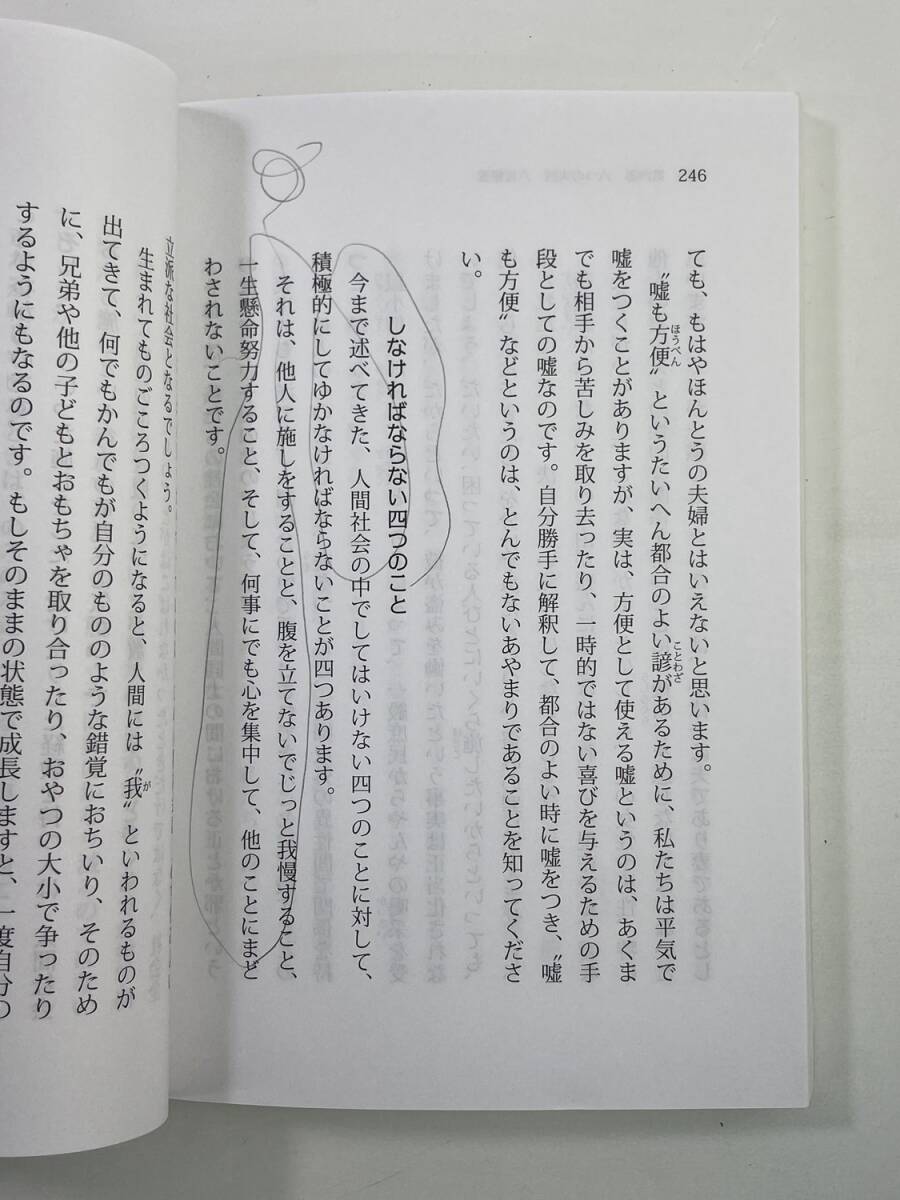 246
ても、もはやほんとうの夫婦とはいえないと思います。
〝嘘も方便〟というたいへん都合のよい諺があるために、私たちは平気で
ほうべん
ことわざ
嘘をつくことがありますが、実は、方便として使える嘘というのは、あくま
でも相手から苦しみを取り去ったり、一時的ではない喜びを与えるための手
段としての嘘なのです。自分勝手に解釈して、都合のよい時に嘘をつき、〝嘘
も方便〟などというのは、とんでもないあやまりであることを知ってくださ
い。
しなければならない四つのこと
今まで述べてきた、人間社会の中でしてはいけない四つのことに対して、
積極的にしてゆかなければならないことが四つあります。
それは、他人に施しをすることと、腹を立てないでじっと我慢すること、
一生懸命努力すること、そして、何事にでも心を集中して、他のことにまど
わされないことです。
立派な社会となるでしょう。
生まれてものごころつくようになると、人間には〝我〟といわれるものが
が
出てきて、何でもかんでもが自分のもののような錯覚におちいり、そのため
に、兄弟や他の子どもとおもちゃを取り合ったり、おやつの大小で争ったり
するようにもなるのです。もしそのままの状態で成長しますと、一度自分の